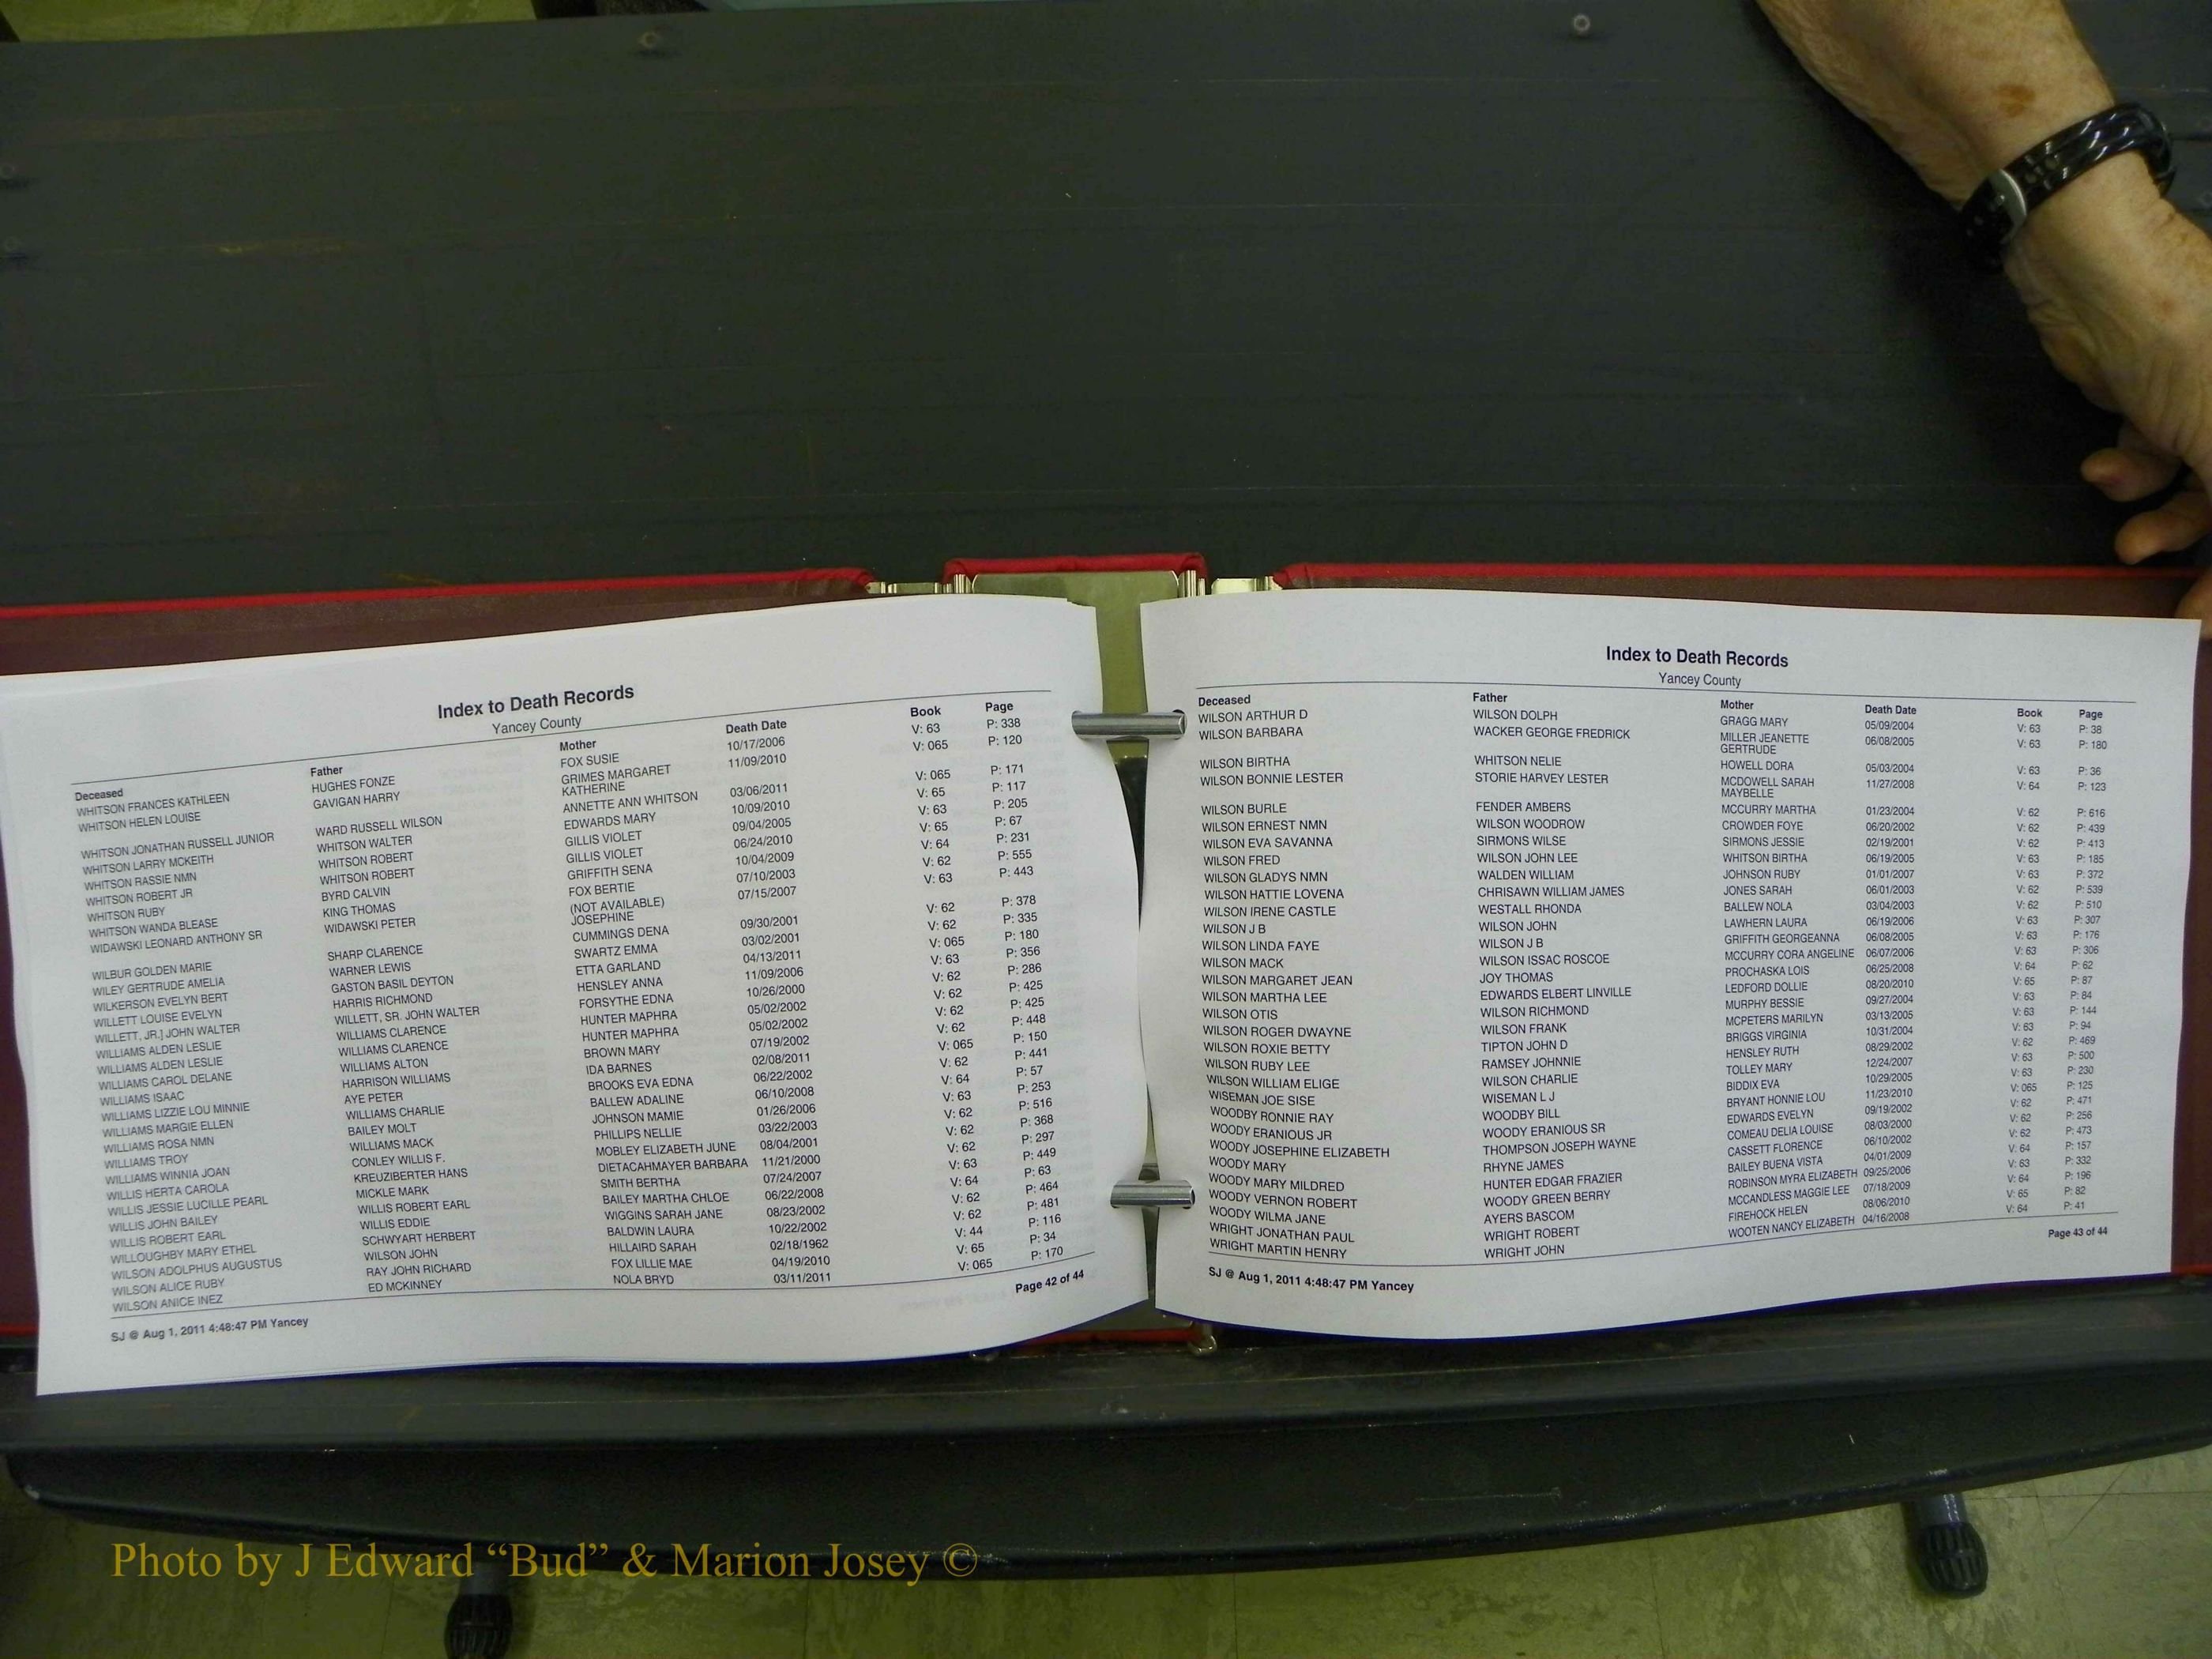 Index to Death Records
Yancey County
Deceased Father Mother Death Date Book Page
WHITSON FRANCES KATHLEEN HUGHES FONZE FOX SUSIE 10/17/2006 V: 63 P: 338
WHITSON HELEN LOUISE GAVIGAN HARRY GRIMES MARGARET 11/09/2010 V: 065 P: 120
KATHERINE
WHITSON JONATHAN RUSSELL JUNIOR WARD RUSSELL WILSON ANNETTE ANN WHITSON 03/06/2011 V: 065 P: 171
WHITSON LARRY MCKEITH WHITSON WALTER EDWARDS MARY 10/09/2010 V: 65 P: 117
WHITSON RASSIE NMN WHITSON ROBERT GILLIS VIOLET 09/04/2005 V: 63 P: 205
WHITSON ROBERT JR WHITSON ROBERT GILLIS VIOLET 06/24/2010 V: 65 P: 67
WHITSON RUBY BYRD CALVIN GRIFFITH SENA 10/04/2009 V: 64 P: 231
WHITSON WANDA BLEASE KING THOMAS FOX BERTIE 07/10/2003 V: 62 P: 555
WIDAWSKI LEONARD ANTHONY SR WIDAWSKI PETER (NOT AVAILABLE) 07/15/2007 V: 63 P: 443
JOSEPHINE
WILBUR GOLDEN MARIE SHARP CLARENCE CUMMINGS DENA 09/30/2001 V: 62 P: 378
WILEY GERTRUDE AMELIA WARNER LEWIS SWARTZ EMMA 03/02/2001 V: 62 P: 335
WILKERSON EVELYN BERT GASTON BASIL DEYTON ETTA GARLAND 04/13/2011 V: 065 P: 180
WILLETT LOUISE EVELYN HARRIS RICHMOND HENSLEY ANNA 11/09/2006 V: 63 P: 356
WILLETT, JR.] JOHN WALTER WILLETT, SR. JOHN WALTER FORSYTHE EDNA 10/26/2000 V: 62 P: 286
WILLIAMS ALDEN LESLIE WILLIAMS CLARENCE HUNTER MAPHRA 05/02/2002 V: 62 P: 425
WILLIAMS ALDEN LESLIE WILLIAMS CLARENCE HUNTER MAPHRA 05/02/2002 V: 62 P: 425
WILLIAMS CAROL DELANE WILLIAMS ALTON BROWN MARY 07/19/2002 V: 62 P: 448
WILLIAMS ISAAC HARRISON WILLIAMS IDA BARNES 02/08/2011 V: 065 P: 150
WILLIAMS LIZZIE LOU MINNIE AYE PETER BROOKS EVA EDNA 06/22/2002 V: 62 P: 441
WILLIAMS MARGIE ELLEN WILLIAMS CHARLIE BALLEW ADALINE 06/10/2008 V: 64 P: 57
WILLIAMS ROSA NMN BAILEY MOLT JOHNSON MAMIE 01/26/2006 V: 63 P: 253
WILLIAMS TROY WILLIAMS MACK PHILLIPS NELLIE 03/22/2003 V: 62 P: 516
WILLIAMS WINNIA JOAN CONLEY WILLIS F. MOBLEY ELIZABETH JUNE 08/04/2001 V: 62 P: 368
WILLIS HERTA CAROLA KREUZIBERTER HANS DIETACAHMAYER BARBARA 11/21/2000 V: 62 P: 297
WILLIS JESSIE LUCILLE PEARL MICKLE MARK SMITH BERTHA 07/24/2007 V: 63 P: 449
WILLIS JOHN BAILEY WILLIS ROBERT EARL BAILEY MARTHA CHLOE 06/22/2008 V: 64 P: 63
WILLIS ROBERT EARL WILLIS EDDIE WIGGINS SARAH JANE 08/23/2002 V: 62 P: 464
WILLOUGHBY MARY ETHEL SCHWYART HERBERT BALDWIN LAURA 10/22/2002 V: 62 P: 481
WILSON ADOLPHUS AUGUSTUS WILSON JOHN HILLAIRD SARAH 02/18/1962 V: 44 P: 116
WILSON ALICE RUBY RAY JOHN RICHARD FOX LILLIE MAE 04/19/2010 V: 65 P: 34
WILSON ANICE INEZ ED MCKINNEY NOLA BRYD 03/11/2011 V: 065 P: 170
Page 42 of 44
SJ @ Aug 1, 2011 4:48:47 PM Yancey
Index to Death Records
Yancey County
Deceased Father Mother Death Date Book Page
WILSON ARTHUR D WILSON DOLPH GRAGG MARY 05/09/2004 V: 63 P: 38
WILSON BARBARA WACKER GEORGE FREDRICK MILLER JEANETTE 06/08/2005 V: 63 P: 180
GERTRUDE
WILSON BIRTHA WHITSON NELIE HOWELL DORA 05/03/2004 V: 63 P: 36
WILSON BONNIE LESTER STORIE HARVEY LESTER MCDOWELL SARAH 11/27/2008 V: 64 P: 123
MAYBELLE
WILSON BURLE FENDER AMBERS MCCURRY MARTHA 01/23/2004 V: 62 P: 616
WILSON ERNEST NMN WILSON WOODROW CROWDER FOYE 06/20/2002 V: 62 P: 439
WILSON EVA SAVANNA SIRMONS WILSE SIRMONS JESSIE 02/19/2001 V: 62 P: 413
WILSON FRED WILSON JOHN LEE WHITSON BIRTHA 06/19/2005 V: 63 P: 185
WILSON GLADYS NMN WALDEN WILLIAM JOHNSON RUBY 01/01/2007 V: 63 P: 372
WILSON HATTIE LOVENA CHRISAWN WILLIAM JAMES JONES SARAH 06/01/2003 V: 62 P: 539
WILSON IRENE CASTLE WESTALL RHONDA BALLEW NOLA 03/04/2003 V: 62 P: 510
WILSON J B WILSON JOHN LAWHERN LAURA 06/19/2006 V: 63 P: 307
WILSON LINDA FAYE WILSON J B GRIFFITH GEORGEANNA 06/08/2005 V: 63 P: 176
WILSON MACK WILSON ISSAC ROSCOE MCCURRY CORA ANGELINE 06/07/2006 V: 63 P: 306
WILSON MARGARET JEAN JOY THOMAS PROCHASKA LOIS 06/25/2008 V: 64 P: 62
WILSON MARTHA LEE EDWARDS ELBERT LINVILLE LEDFORD DOLLIE 08/20/2010 V: 65 P: 87
WILSON OTIS WILSON RICHMOND MURPHY BESSIE 09/27/2004 V: 63 P: 84
WILSON ROGER DWAYNE WILSON FRANK MCPETERS MARILYN 03/13/2005 V: 63 P: 144
WILSON ROXIE BETTY TIPTON JOHN D BRIGGS VIRGINIA 10/31/2004 V: 63 P: 94
WILSON RUBY LEE RAMSEY JOHNNIE HENSLEY RUTH 08/29/2002 V: 62 P: 469
WILSON WILLIAM ELIGE WILSON CHARLIE TOLLEY MARY 12/24/2007 V: 63 P: 500
WISEMAN JOE SISE WISEMAN L J BIDDIX EVA 10/29/2005 V: 63 P: 230
WOODBY RONNIE RAY WOODBY BILL BRYANT HONNIE LOU 11/23/2010 V: 065 P: 125
WOODY ERANIOUS JR WOODY ERANIOUS SR EDWARDS EVELYN 09/19/2002 V: 62 P: 471
WOODY JOSEPHINE ELIZABETH THOMPSON JOSEPH WAYNE COMEAU DELIA LOUISE 08/03/2000 V: 62 P: 256
WOODY MARY RHYNE JAMES CASSETT FLORENCE 06/10/2002 V: 62 P: 473
WOODY MARY MILDRED HUNTER EDGAR FRAZIER BAILEY BUENA VISTA 04/01/2009 V: 64 P: 157
WOODY VERNON ROBERT WOODY GREEN BERRY ROBINSON MYRA ELIZABETH 09/25/2006 V: 63 P: 332
WOODY WILMA JANE AYERS BASCOM MCCANDLESS MAGGIE LEE 07/18/2009 V: 64 P: 196
WRIGHT JONATHAN PAUL WRIGHT ROBERT FIREHOCK HELEN 08/06/2010 V: 65 P: 82
WRIGHT MARTIN HENRY WRIGHT JOHN WOOTEN NANCY ELIZABETH 04/16/2008 V: 64 P: 41
Page 43 of 44
SJ @ Aug 1, 2011 4:48:47 PM Yancey
Photo by J Edward “Bud” & Marion Josey ©